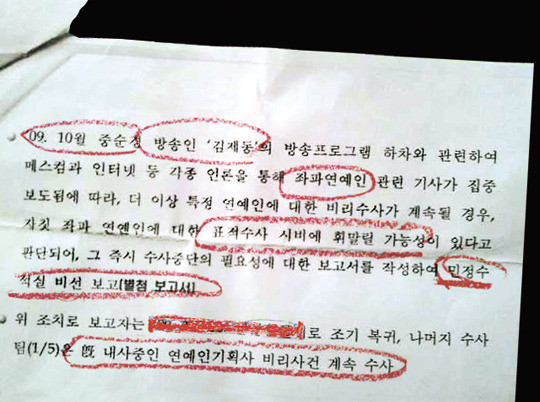 09. 10월 중순경 방송인 '김제동'의 방송프로그램 하차와 관련하여
메스컴과 인터넷 등 각종 언론을 통해 좌파연예인 관련 기사가 집중
보도됨에 따라, 더 이상 특정 연예인에 대한 비리수사가 계속될 경우,
자칫 좌파 연예인에 대한 표적수사 시비에 휘말릴 가능성이 있다고
판단되어, 그 즉시 수사중단의 필요성에 대한 보고서를 작성하여 민정수
석실 비선 보고[별첨 보고서]
위 조치로 보고자는 로 조기 복귀, 나머지 수사
팀(1/5)은 旣 내사중인 연예인기획사 비리사건 계속 수사